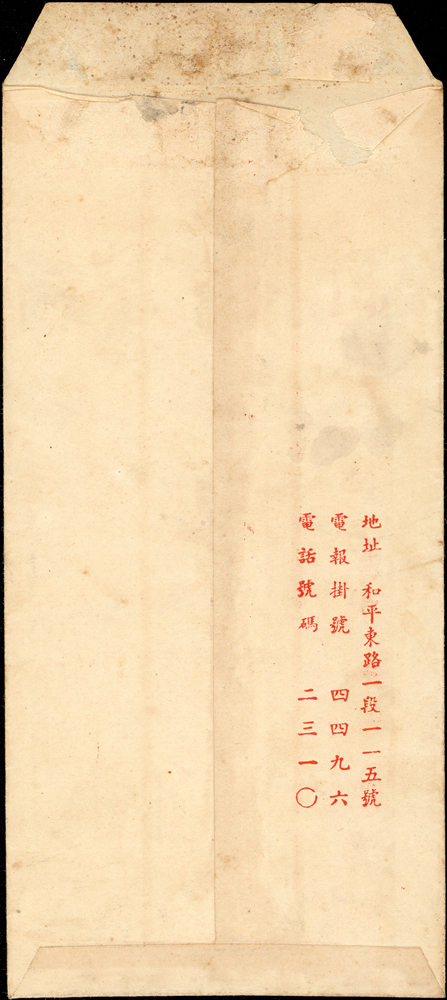 地址 和平東路一段一一五號
電報掛號 四四九六
電話號碼 二三一〇